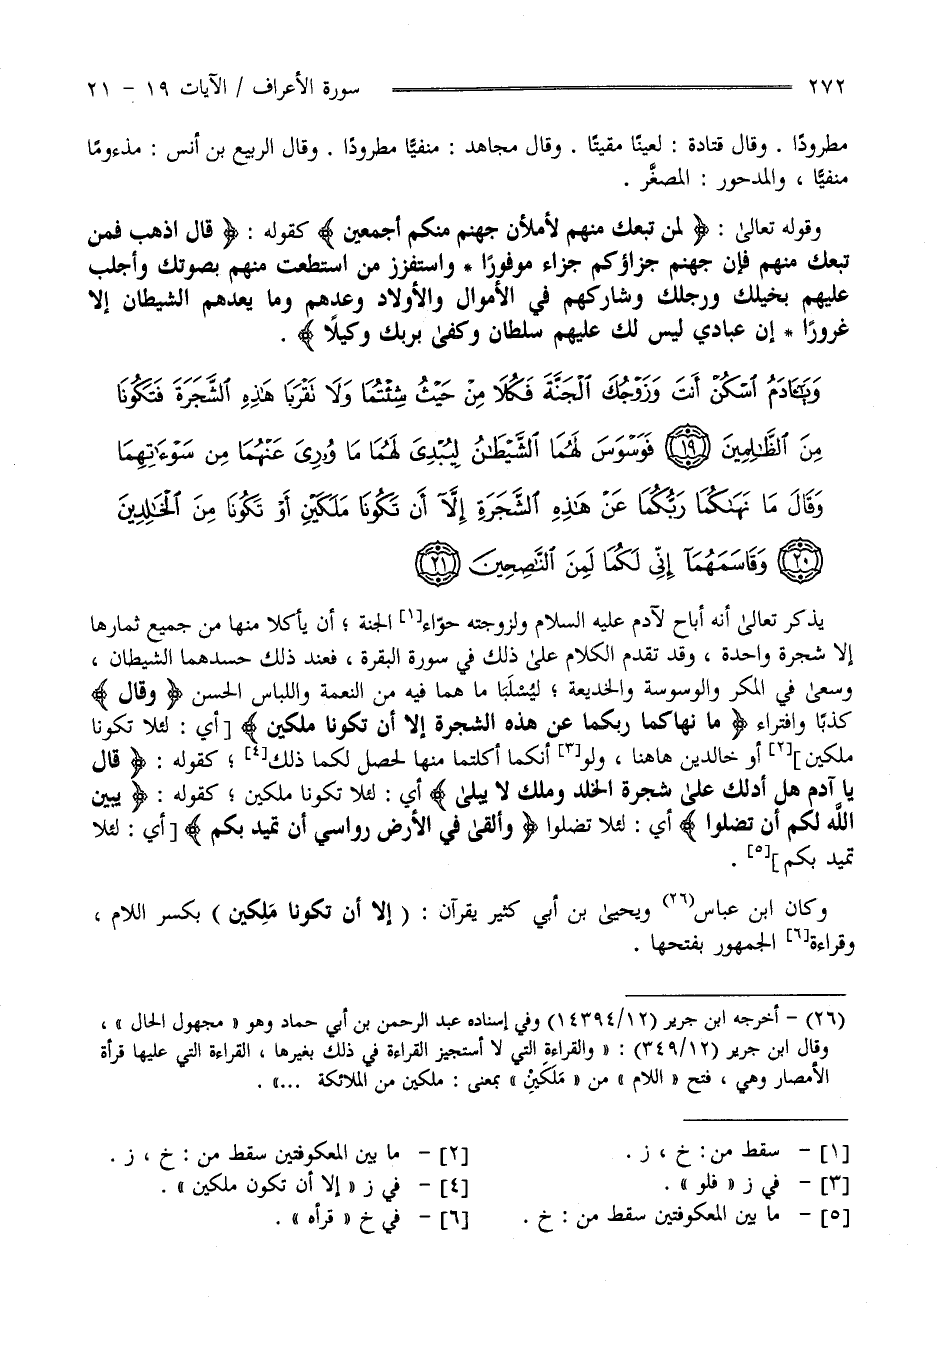 ٢٧٢ سورة الأعراف / الآيات ١٩ - ٢١
مطرودًا . وقال قتادة : لعينًا مقيتًا . وقال مجاهد : منفيًّا مطرودًا . وقال الربيع بن أنس : مذءومًا
منفيًّا ، والمدحور : المصغَّر .
وقوله تعالىٰ : ﴿ لمن تبعك منهم لأملأن جهنم منكم أجمعين ﴾ كقوله : ﴿ قال اذهب فمن
تبعك منهم فإن جهنم جزاؤكم جزاء موفورًا * واستفزز من استطعت منهم بصوتك وأجلب
عليهم بخيلك ورجلك وشاركهم في الأموال والأولاد وعدهم وما يعدهم الشيطان إلا
غرورًا * إن عبادي ليس لك عليهم سلطان وكفىٰ بربك وكيلًا ﴾ .
وَيَٰٓـَٔادَمُ ٱسْكُنْ أَنتَ وَزَوْجُكَ ٱلْجَنَّةَ فَكُلَا مِنْ حَيْثُ شِئْتُمَا وَلَا تَقْرَبَا هَٰذِهِ ٱلشَّجَرَةَ فَتَكُونَا
مِنَ ٱلظَّٰلِمِينَ ﴿١٩﴾ فَوَسْوَسَ لَهُمَا ٱلشَّيْطَٰنُ لِيُبْدِىَ لَهُمَا مَا وُۥرِىَ عَنْهُمَا مِن سَوْءَٰتِهِمَا
وَقَالَ مَا نَهَىٰكُمَا رَبُّكُمَا عَنْ هَٰذِهِ ٱلشَّجَرَةِ إِلَّآ أَن تَكُونَا مَلَكَيْنِ أَوْ تَكُونَا مِنَ ٱلْخَٰلِدِينَ
﴿٢٠﴾ وَقَاسَمَهُمَآ إِنِّى لَكُمَا لَمِنَ ٱلنَّٰصِحِينَ ﴿٢١﴾
يذكر تعالىٰ أنه أباح لآدم عليه السلام ولزوجته حوّاء[١] الجنة ؛ أن يأكلا منها من جميع ثمارها
إلا شجرة واحدة ، وقد تقدم الكلام علىٰ ذلك في سورة البقرة ، فعند ذلك حسدهما الشيطان ،
وسعىٰ في المكر والوسوسة والخديعة ؛ ليُسْلَبَا ما هما فيه من النعمة واللباس الحسن ﴿ وقال ﴾
كذبًا وافتراء ﴿ ما نهاكما ربكما عن هذه الشجرة إلا أن تكونا ملكين ﴾ [أي : لئلا تكونا
ملكين][٢] أو خالدين هاهنا ، ولو[٣] أنكما أكلتما منها لحصل لكما ذلك[٤] ؛ كقوله : ﴿ قال
يا آدم هل أدلك علىٰ شجرة الخلد وملك لا يبلىٰ ﴾ أي : لئلا تكونا ملكين ؛ كقوله : ﴿ يبين
اللَّه لكم أن تضلوا ﴾ أي : لئلا تضلوا ﴿ وألقىٰ في الأرض رواسي أن تميد بكم ﴾ [أي : لئلا
تميد بكم][٥] .
وكان ابن عباس(٢٦) ويحيىٰ بن أبي كثير يقرآن : ( إلا أن تكونا مَلِكين ) بكسر اللام ،
وقراءة[٦] الجمهور بفتحها .
(٢٦) - أخرجه ابن جرير (١٤٣٩٤/١٢) وفي إسناده عبد الرحمن بن أبي حماد وهو « مجهول الحال » ،
وقال ابن جرير (٣٤٩/١٢) : « والقراءة التي لا أستجيز القراءة في ذلك بغيرها ، القراءة التي عليها قرأة
الأمصار وهي ، فتح « اللام » من « مَلَكَيْنِ » بمعنى : ملكين من الملائكة ...» .
[١] - سقط من : خ ، ز . [٢] - ما بين المعكوفتين سقط من : خ ، ز .
[٣] - في ز « فلو » . [٤] - في ز « إلا أن تكون ملكين » .
[٥] - ما بين المعكوفتين سقط من : خ . [٦] - في خ « قرأه » .